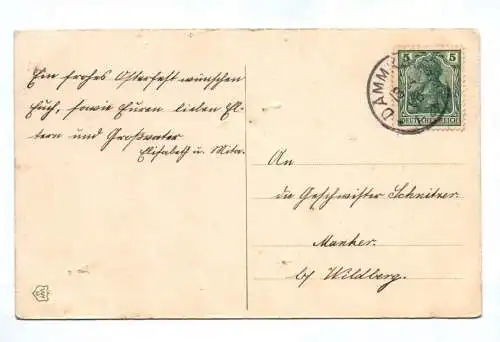 Ein frohes Osterfest wünschen
Euch, sowie Euren lieben El-
tern und Großvater
Elisabeth u. Mita.
5 5
DEUTSCHES REICH
DAMM
An
die Geschwister Schnitzer
Manker.
b/ Wildberg.